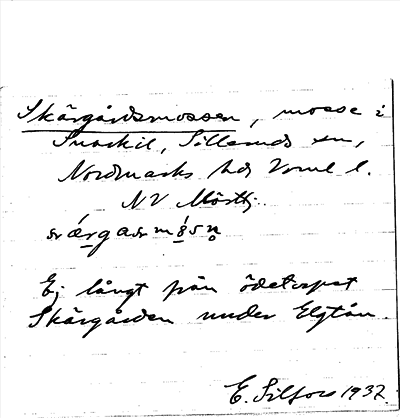 Skärgårdsmossen, mosse i
Snarkil, Silleruds sn,
Nordmarks hd Vrml l.
NV Mörttj.
Ej långt från ödetorpet
Skärgården under Elgtån.
E. Silfors 1932.